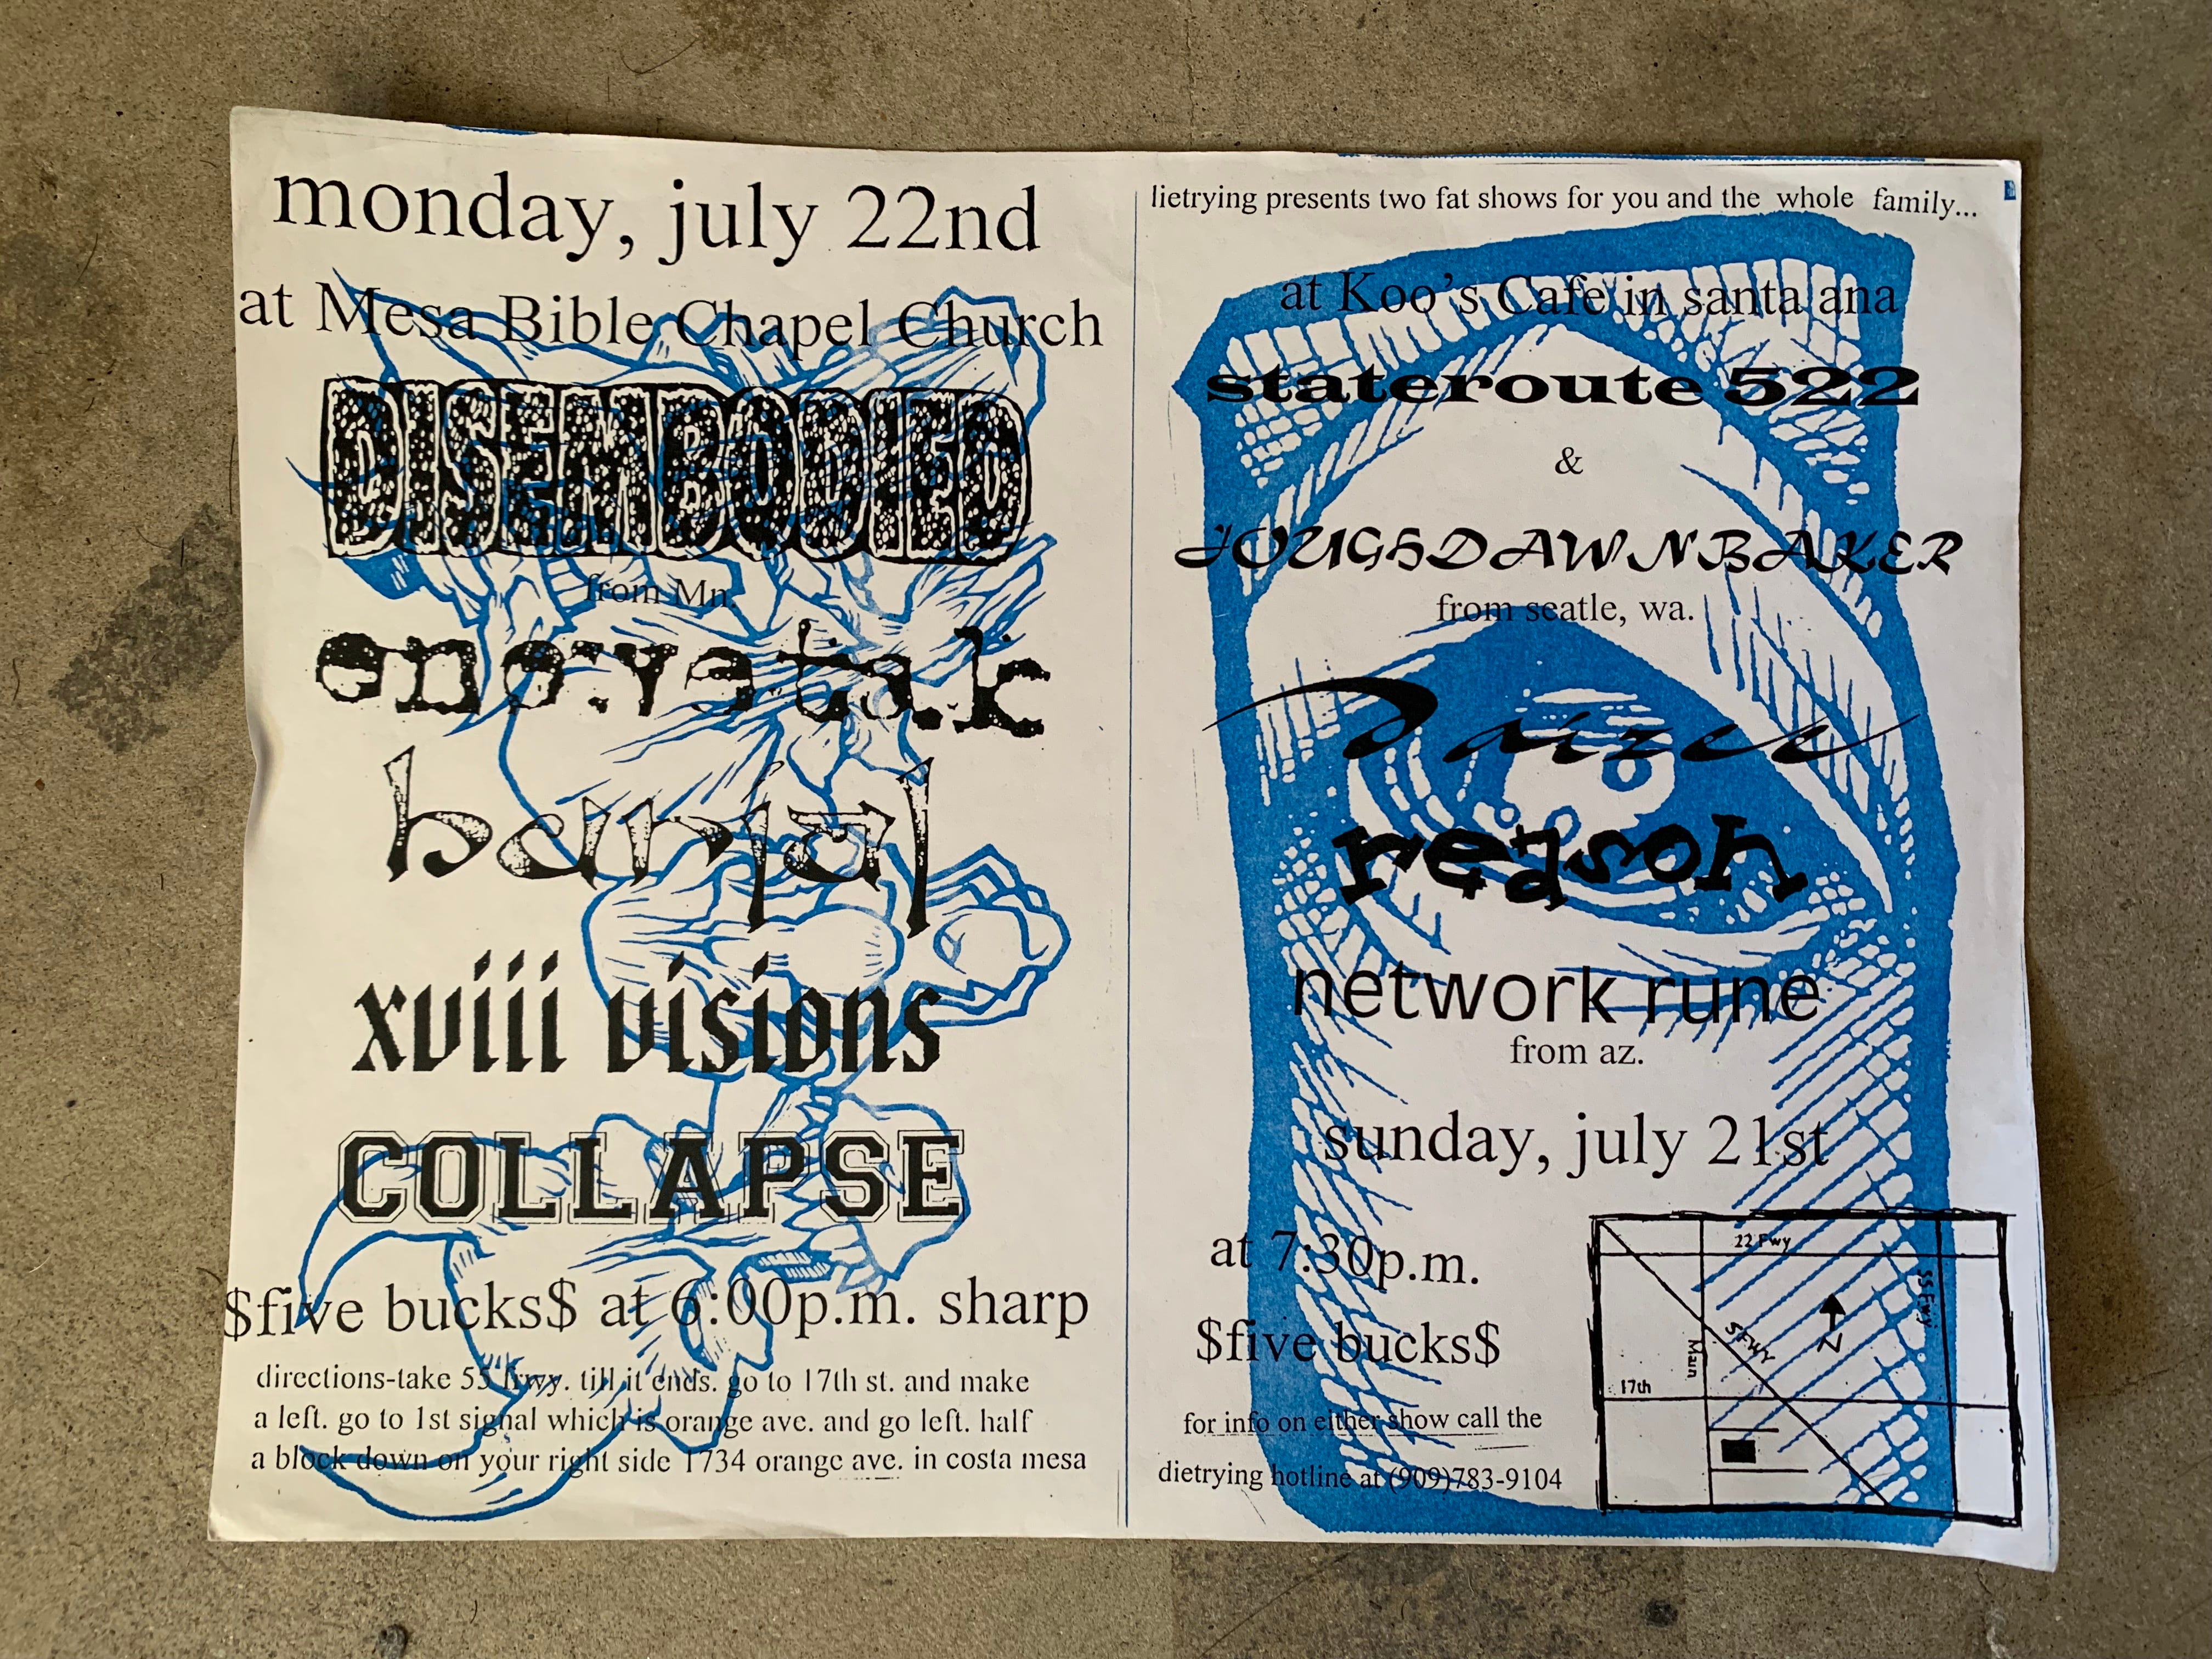 monday, july 22nd
at Mesa Bible Chapel Church
DISEMBODIED
from Mn.
enewetak
hanjal
xviii visions
COLLAPSE
$five bucks$ at 6:00p.m. sharp
directions-take 55 frwy. till it ends. go to 17th st. and make
a left. go to 1st signal which is orange ave. and go left. half
a block down on your right side 1734 orange ave. in costa mesa
lietrying presents two fat shows for you and the whole family...
at Koo's Cafe in santa ana
stateroute 522
&
JOUGHDAWNBAKER
from seatle, wa.
Daizee
reason
network rune
from az.
sunday, july 21st
at 7:30p.m.
$five bucks$
for info on either show call the
dietrying hotline at (909)783-9104
22 Fwy
55 Fwy
5 FWY
Main
N
17th